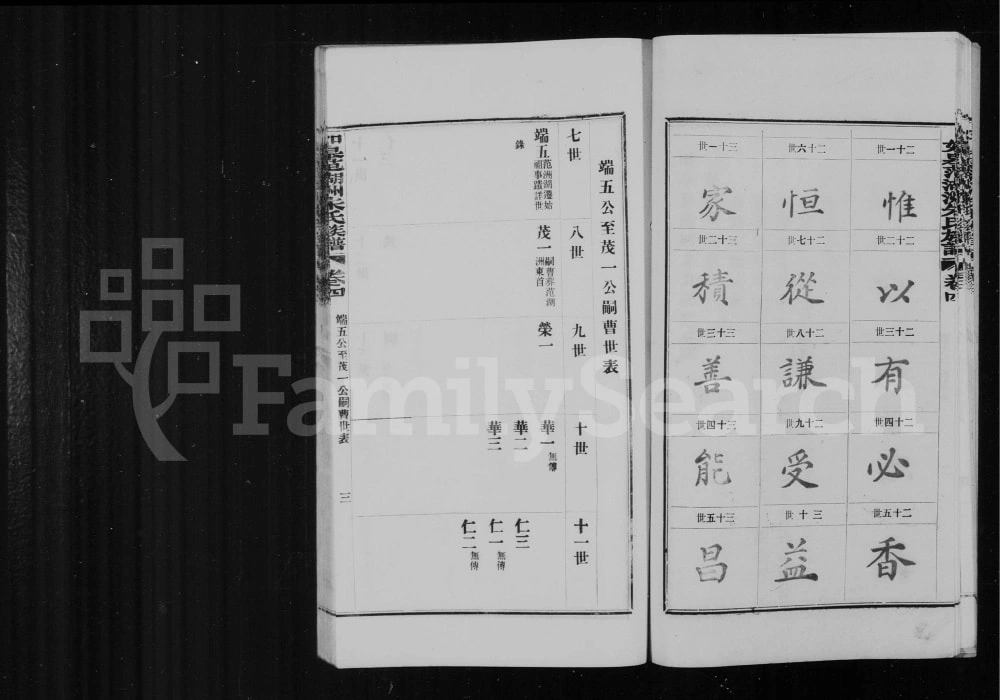 二十一世
惟
二十二世
以
二十三世
有
二十四世
必
二十五世
香
二十六世
恒
二十七世
從
二十八世
謙
二十九世
受
三十世
益
三十一世
家
三十二世
積
三十三世
善
三十四世
能
三十五世
昌
卷四
端五公至茂一公嗣曹世表
七世
八世
九世
十世
十一世
端五
范洲湖遷始
祖事蹟詳世
錄
茂一
嗣曹葬范湖
洲東首
榮一
華一 無傳
華二
華三
仁三
仁一 無傳
仁二 無傳
湖洲朱氏族譜 卷四
端五公至茂一公嗣曹世表
三
FamilySearch